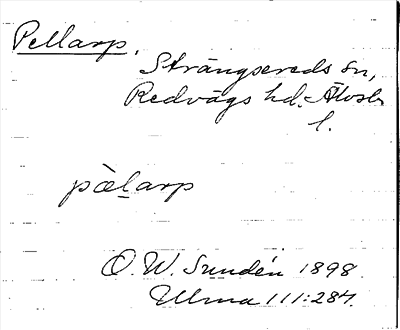 Pellarp.
Strängsereds sn,
Redvägs hd. Älvsb
l.
pæ̀larp
O. W. Sundén 1898.
Ulma 111:284.